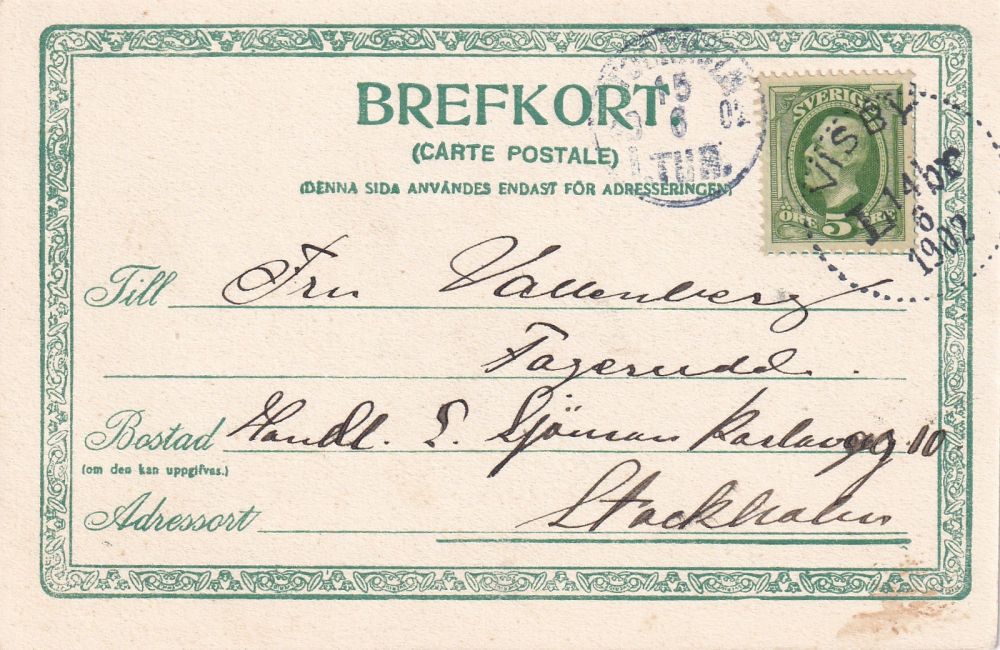 BREFKORT.
(CARTE POSTALE)
(DENNA SIDA ANVÄNDES ENDAST FÖR ADRESSERINGEN)
15
6 02
1.TUR.
SVERIGE
ÖRE 5 ÖRE
VISBY
L
14
6
1902
Till Fru Wallenberg
Fagerudd.
Bostad Handl. S. Sjöman Karlaväg. 10
(om den kan uppgifvas.)
Adressort Stockholm